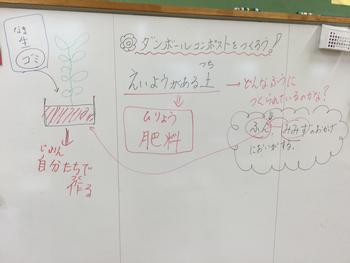 ダンボールコンポストをつくろう!
なま
生
ゴミ
つち
えいようがある土
→どんなふうに
つくられているのかな?
ひりょう
肥料
ふん
みみずのおかげ
においがする。
じぶん
自分たちで
作る